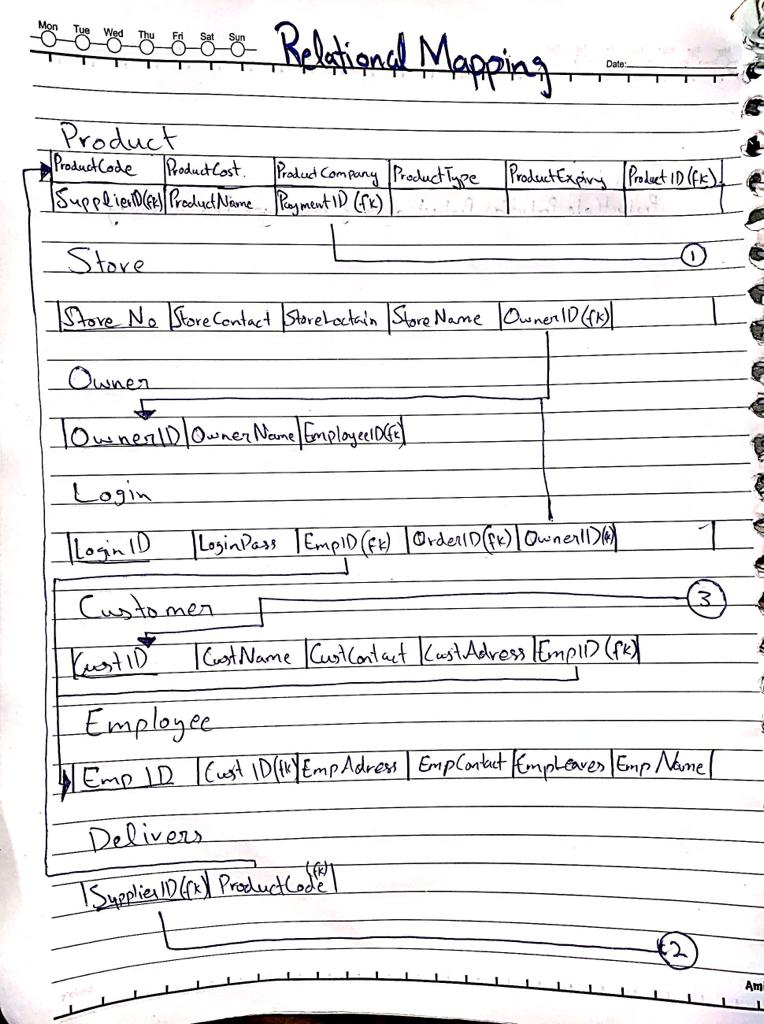 Mon Tue Wed Thu Fri Sat Sun
Relational Mapping
Date:
Product
ProductCode ProductCost. ProductCompany ProductType ProductExpiry Product ID (fk)
SupplierID(fk) ProductName PaymentID (fk)
1
Store
Store No StoreContact StoreLoctain StoreName OwnerID(fk)
Owner
OwnerID OwnerName EmployeeID(fk)
Login
LoginID LoginPass EmpID(fk) OrderID(fk) OwnerID(fk)
Customer
3
CustID CustName CustContact CustAdress EmpID(fk)
Employee
Emp ID Cust ID(fk) EmpAdress EmpContact EmpLeaves EmpName
Delivers
SupplierID(fk) ProductCode(fk)
2